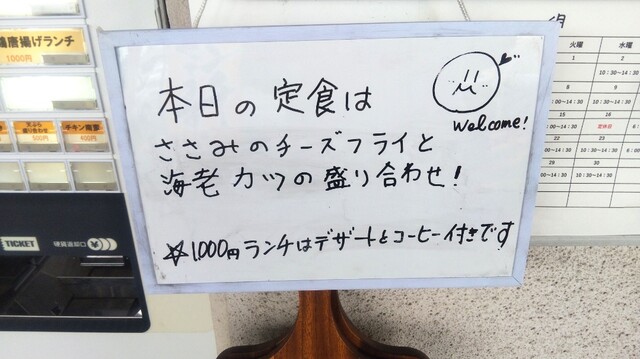 本日の定食は
ささみのチーズフライと
海老カツの盛り合わせ!
☆1,000円ランチはデザートとコーヒー付きです
welcome!
鶏唐揚げランチ
1000円
盛り合わせ
500円
チキン南蛮
450円
TICKET
月
火曜 水曜
1 2
10:30～14:30
8 9
00～14:30 10:30～14:30
15 16
00～14:30 定休日
22 23
00～14:30 10:30～14:30
29 30
00～14:30 10:30～14:30